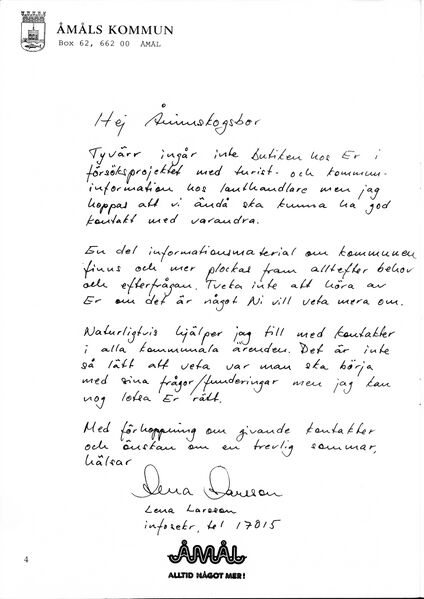 ÅMÅLS KOMMUN
Box 62, 662 00 ÅMÅL
Hej Ånimskogsbor
Tyvärr ingår inte butiken hos Er i
försöksprojektet med turist- och kommun-
information hos lanthandlare men jag
hoppas att vi ändå ska kunna ha god
kontakt med varandra.
En del informationsmaterial om kommunen
finns och mer plockas fram allt efter behov
och efterfrågan. Tveka inte att höra av
Er om det är något Ni vill veta mera om.
Naturligtvis hjälper jag till med kontakter
i alla kommunala ärenden. Det är inte
så lätt att veta var man ska börja
med sina frågor/funderingar men jag kan
nog lotsa Er rätt.
Med förhoppning om givande kontakter
och önskan om en trevlig sommar,
hälsar
Lena Larsson
Lena Larsson
infosekr, tel 17015
ÅMÅL
ALLTID NÅGOT MER!
4